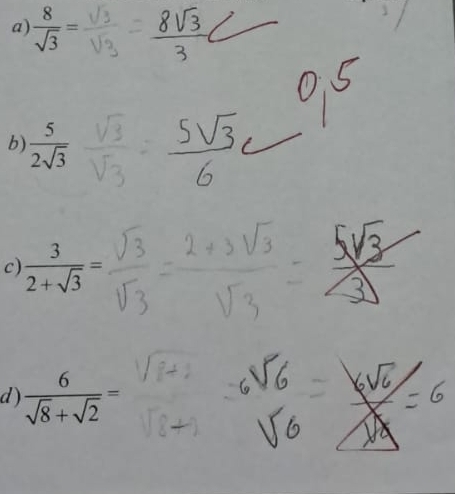 a) 8/√3 = √3/√3 = 8√3/3
0,5
b) 5/2√3 √3/√3 = 5√3/6
c) 3/2+√3 = √3/√3 = 2+3√3/√3 = 5√3/3
d) 6/√8+√2 = = 6√6/√6 = 6√6/√6 = 6